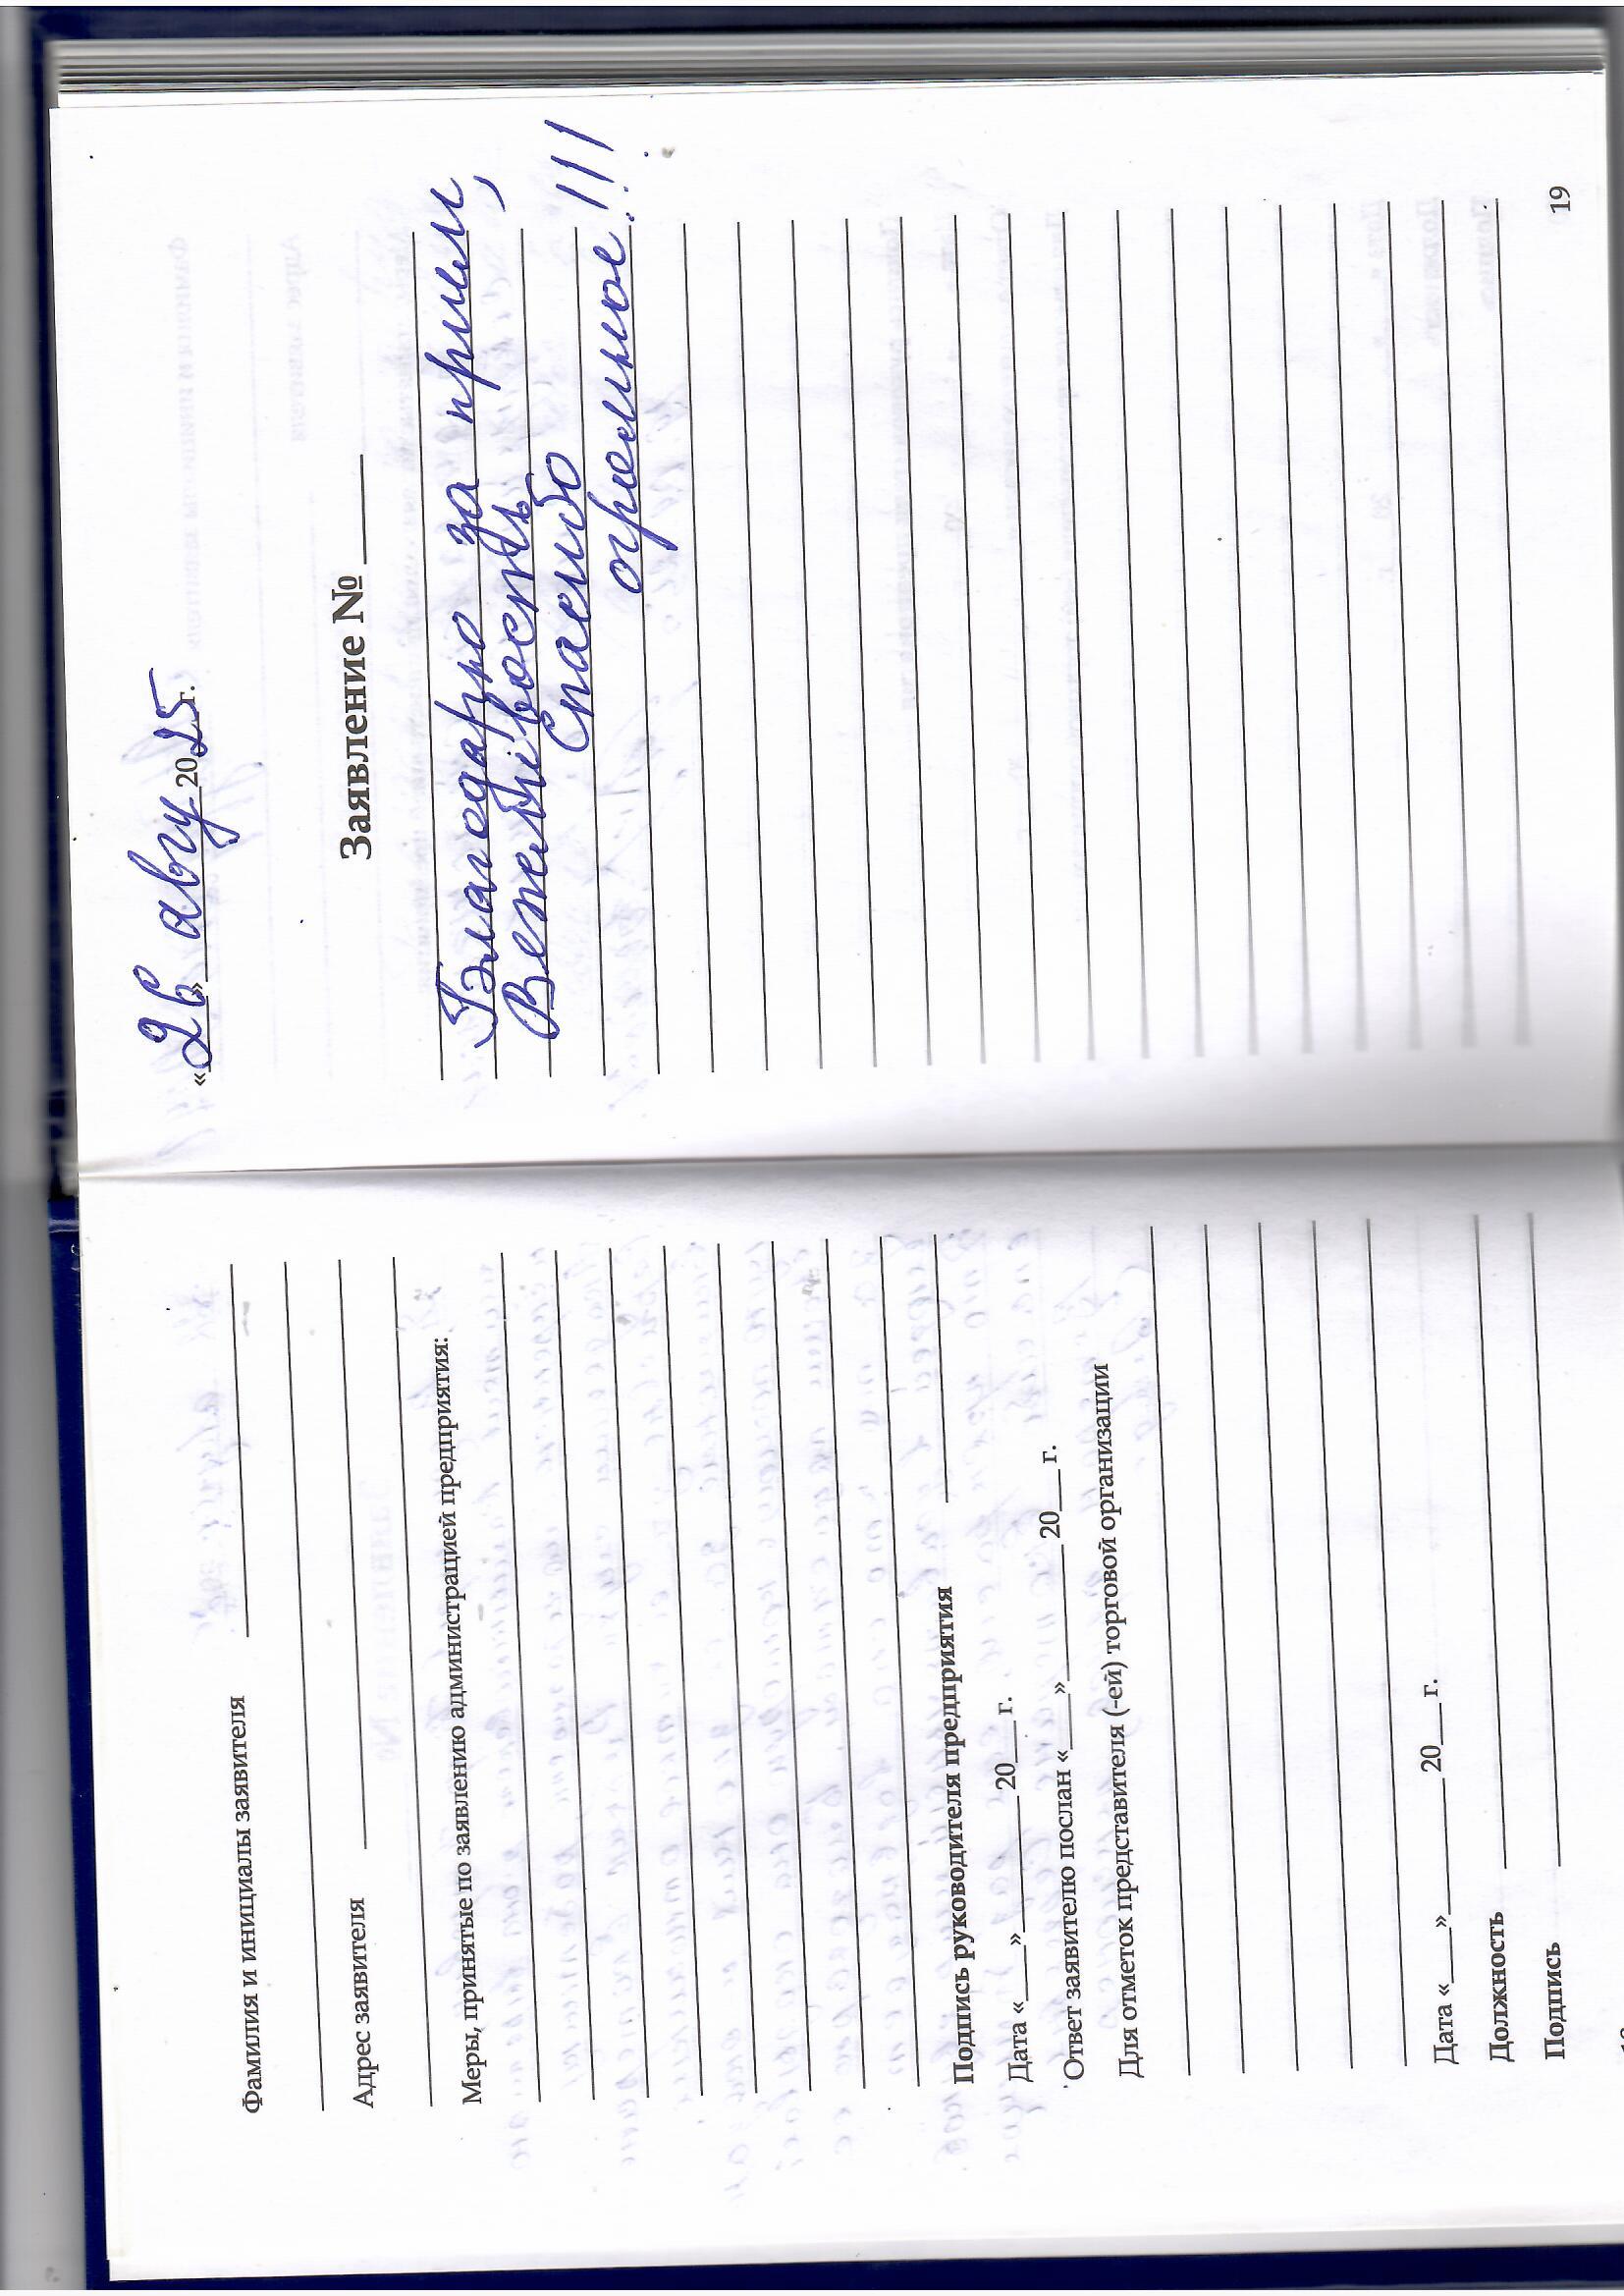 Фамилия и инициалы заявителя
Адрес заявителя
Меры, принятые по заявлению администрацией предприятия:
Подпись руководителя предприятия
Дата «___»________20___г.
Ответ заявителю послан «____»________20___г.
Для отметок представителя (-ей) торговой организации
Дата «___»________20___г.
Должность
Подпись
«26» авгу 2025г.
Заявление №
Благодарю за прием,
Вежливость
Спасибо
огромное!!!
19